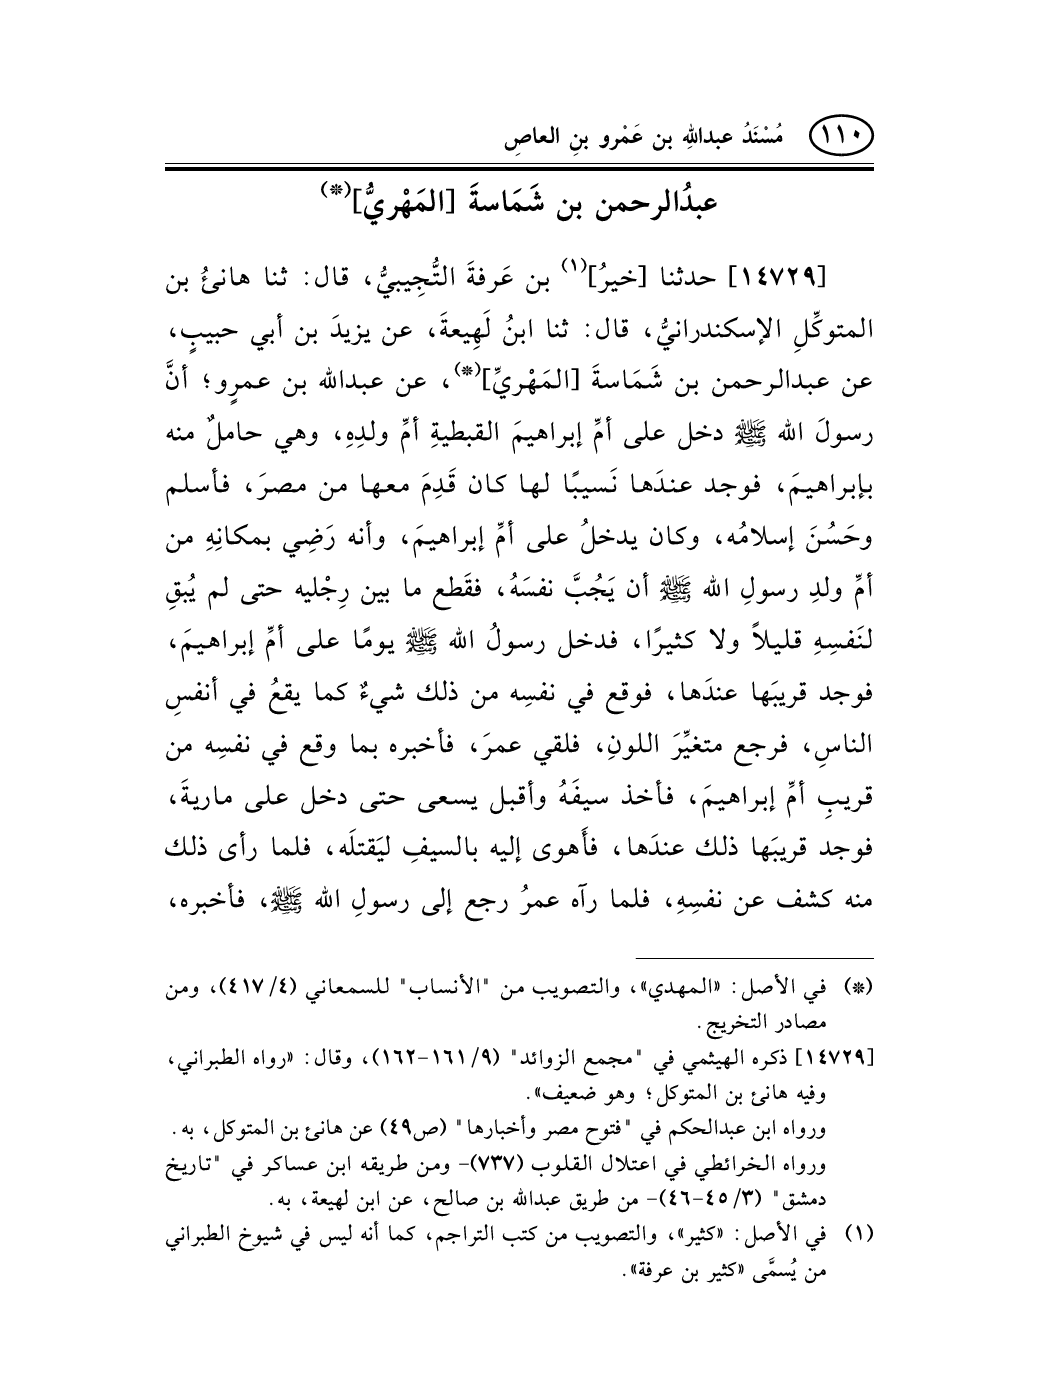 ١١٠ مُسْنَدُ عبدالله بن عَمْرو بنِ العاصِ
عبدُالرحمن بن شَمَاسةَ [المَهْريُّ](*)
[١٤٧٢٩] حدثنا [خيرُ](١) بن عَرفةَ التُّجِيبيُّ، قال: ثنا هانئُ بن
المتوكِّلِ الإسكندرانيُّ، قال: ثنا ابنُ لَهِيعةَ، عن يزيدَ بن أبي حبيبٍ،
عن عبدالرحمن بن شَمَاسةَ [المَهْريِّ](*)، عن عبدالله بن عمرٍو؛ أنَّ
رسولَ الله ﷺ دخل على أمِّ إبراهيمَ القبطيةِ أمِّ ولدِهِ، وهي حاملٌ منه
بإبراهيمَ، فوجد عندَها نَسيبًا لها كان قَدِمَ معها من مصرَ، فأسلم
وحَسُنَ إسلامُه، وكان يدخلُ على أمِّ إبراهيمَ، وأنه رَضِي بمكانِهِ من
أمِّ ولدِ رسولِ الله ﷺ أن يَجُبَّ نفسَهُ، فقَطع ما بين رِجْليه حتى لم يُبقِ
لنَفسِهِ قليلاً ولا كثيرًا، فدخل رسولُ الله ﷺ يومًا على أمِّ إبراهيمَ،
فوجد قريبَها عندَها، فوقع في نفسِه من ذلك شيءٌ كما يقعُ في أنفسِ
الناسِ، فرجع متغيِّرَ اللونِ، فلقي عمرَ، فأخبره بما وقع في نفسِه من
قريبِ أمِّ إبراهيمَ، فأخذ سيفَهُ وأقبل يسعى حتى دخل على ماريةَ،
فوجد قريبَها ذلك عندَها، فأَهوى إليه بالسيفِ ليَقتلَه، فلما رأى ذلك
منه كشف عن نفسِهِ، فلما رآه عمرُ رجع إلى رسولِ الله ﷺ، فأخبره،
(*) في الأصل: «المهدي»، والتصويب من "الأنساب" للسمعاني (٤/ ٤١٧)، ومن
مصادر التخريج.
[١٤٧٢٩] ذكره الهيثمي في "مجمع الزوائد" (٩/ ١٦١-١٦٢)، وقال: «رواه الطبراني،
وفيه هانئ بن المتوكل؛ وهو ضعيف».
ورواه ابن عبدالحكم في "فتوح مصر وأخبارها" (ص٤٩) عن هانئ بن المتوكل، به.
ورواه الخرائطي في اعتلال القلوب (٧٣٧)- ومن طريقه ابن عساكر في "تاريخ
دمشق" (٣/ ٤٥-٤٦)- من طريق عبدالله بن صالح، عن ابن لهيعة، به.
(١) في الأصل: «كثير»، والتصويب من كتب التراجم، كما أنه ليس في شيوخ الطبراني
من يُسمَّى «كثير بن عرفة».